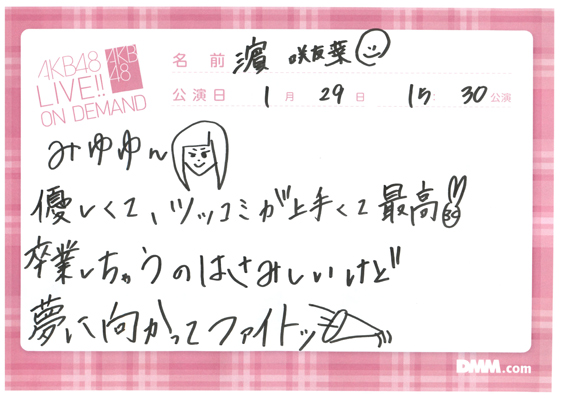 AKB48
LIVE!!
ON DEMAND
AKB
48
名前 濵 咲友菜
公演日 1月29日 15:30公演
みゆゆん
優しくて、ツッコミが上手くて最高
卒業しちゃうのはさみしいけど
夢に向かってファイトッ
DMM.com